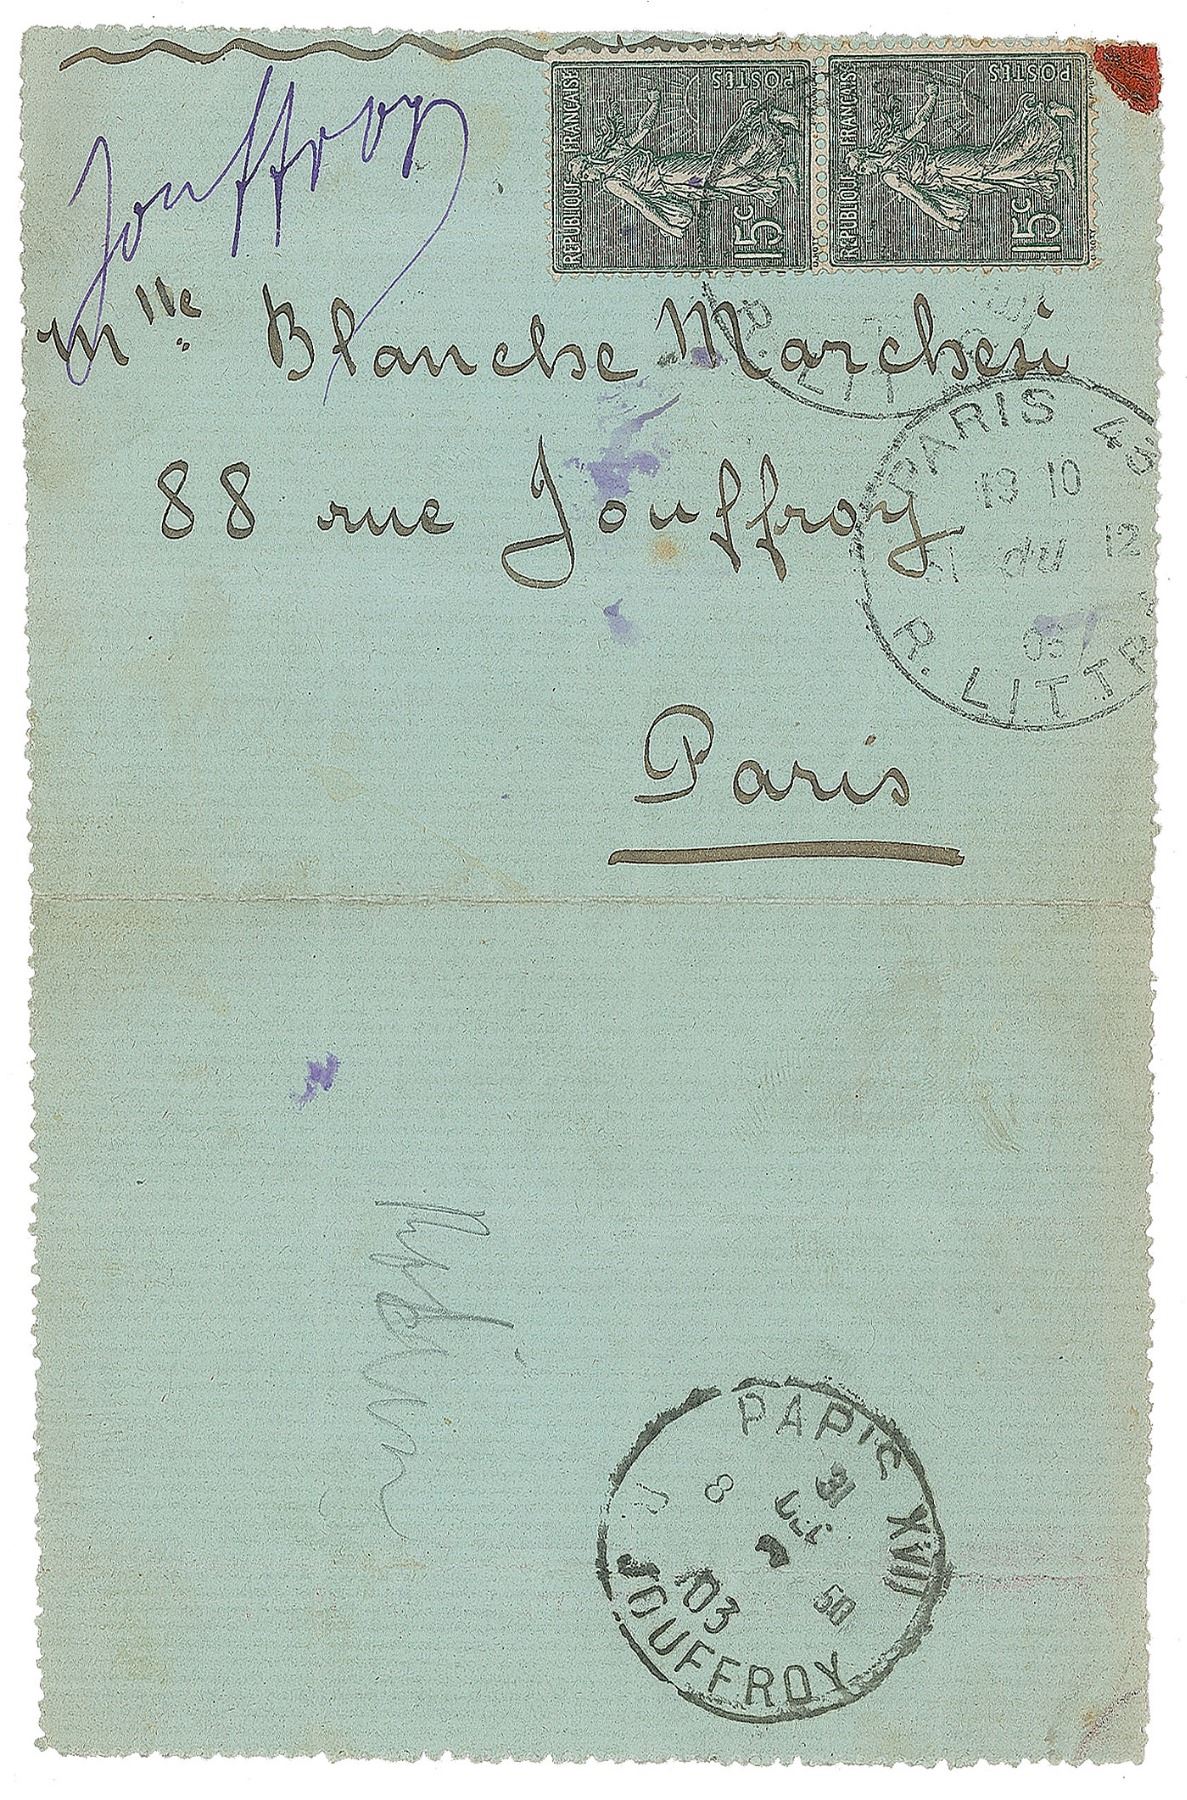 Jouffroy
POSTES
RÉPUBLIQUE FRANÇAISE
15c
POSTES
RÉPUBLIQUE FRANÇAISE
15c
Mlle Blanche Marchesi
R. LITT
88 rue Jouffroy
PARIS
19 10
31 du 12
03
R. LITTR
Paris
PARIS XVII
31
DEC
8 50
03
R. JOUFFROY